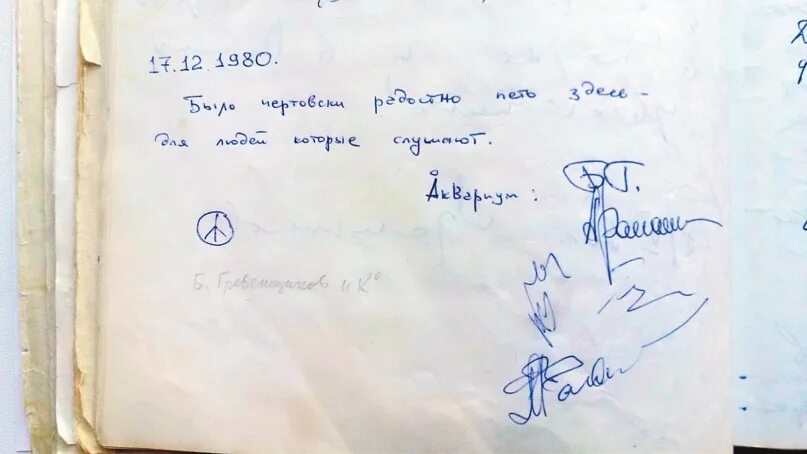 17.12.1980.
Было чертовски радостно петь здесь –
для людей которые слушают.
Аквариум: БГ.
Б. Гребенщиков и К°